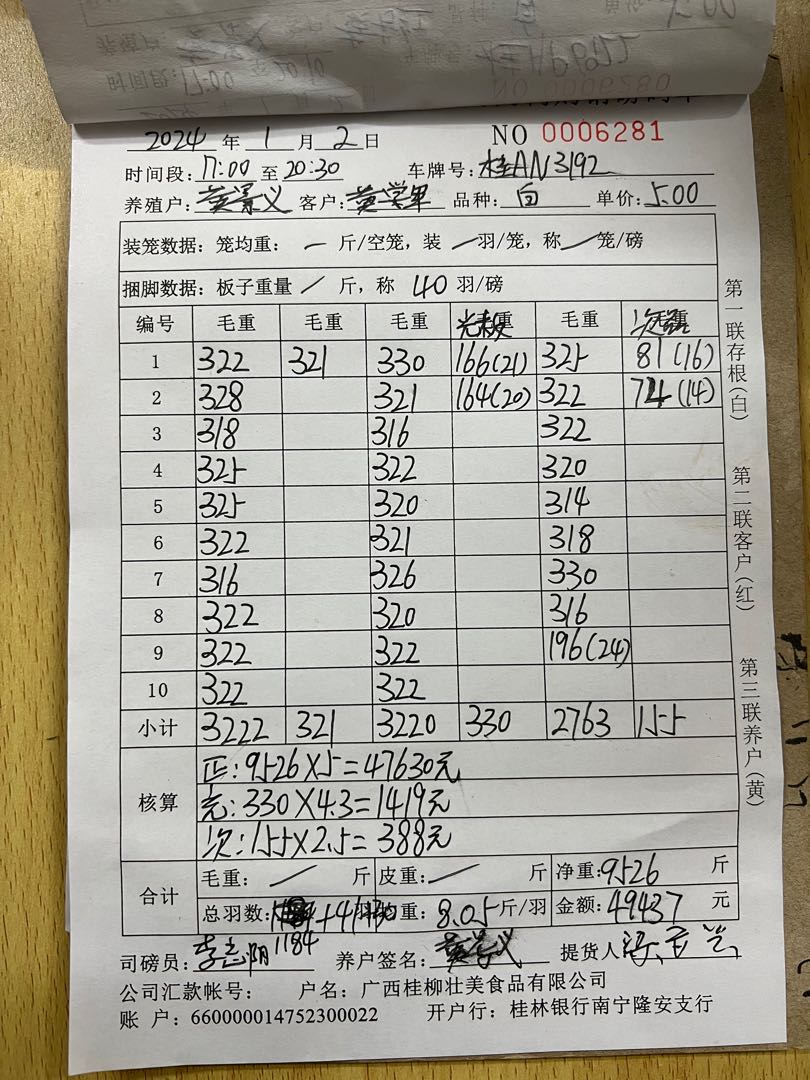 时间段:17:00
NO 0006280
2024 年 1 月 2 日 NO 0006281
时间段: 17:00 至 20:30 车牌号: 桂AN3192
养殖户: 黄景义 客户: 黄学军 品种: 白 单价: 5.00
装笼数据: 笼均重: — 斤/空笼, 装 / 羽/笼, 称 / 笼/磅
捆脚数据: 板子重量 / 斤, 称 40 羽/磅
编号 毛重 毛重 毛重 毛重
1 322 321 330 166(21) 325 81(16)
2 328 321 164(20) 322 74(14)
3 318 316 322
4 325 322 320
5 325 320 314
6 322 321 318
7 316 326 330
8 322 320 316
9 322 322 196(24)
10 322 322
小计 3222 321 3220 330 2763 155
核算
正: 9526×5=47630元
光: 330×4.3=1419元
次: 155×2.5=388元
合计
毛重: / 斤 皮重: / 斤 净重: 9526 斤
总羽数: +41+30 重: 8.05 斤/羽 金额: 49437 元
1184
司磅员: 李志阳 养户签名: 黄景义 提货人
公司汇款帐号: 户名: 广西桂柳壮美食品有限公司
账 户: 660000014752300022 开户行: 桂林银行南宁隆安支行
第一联存根(白)
第二联客户(红)
第三联养户(黄)